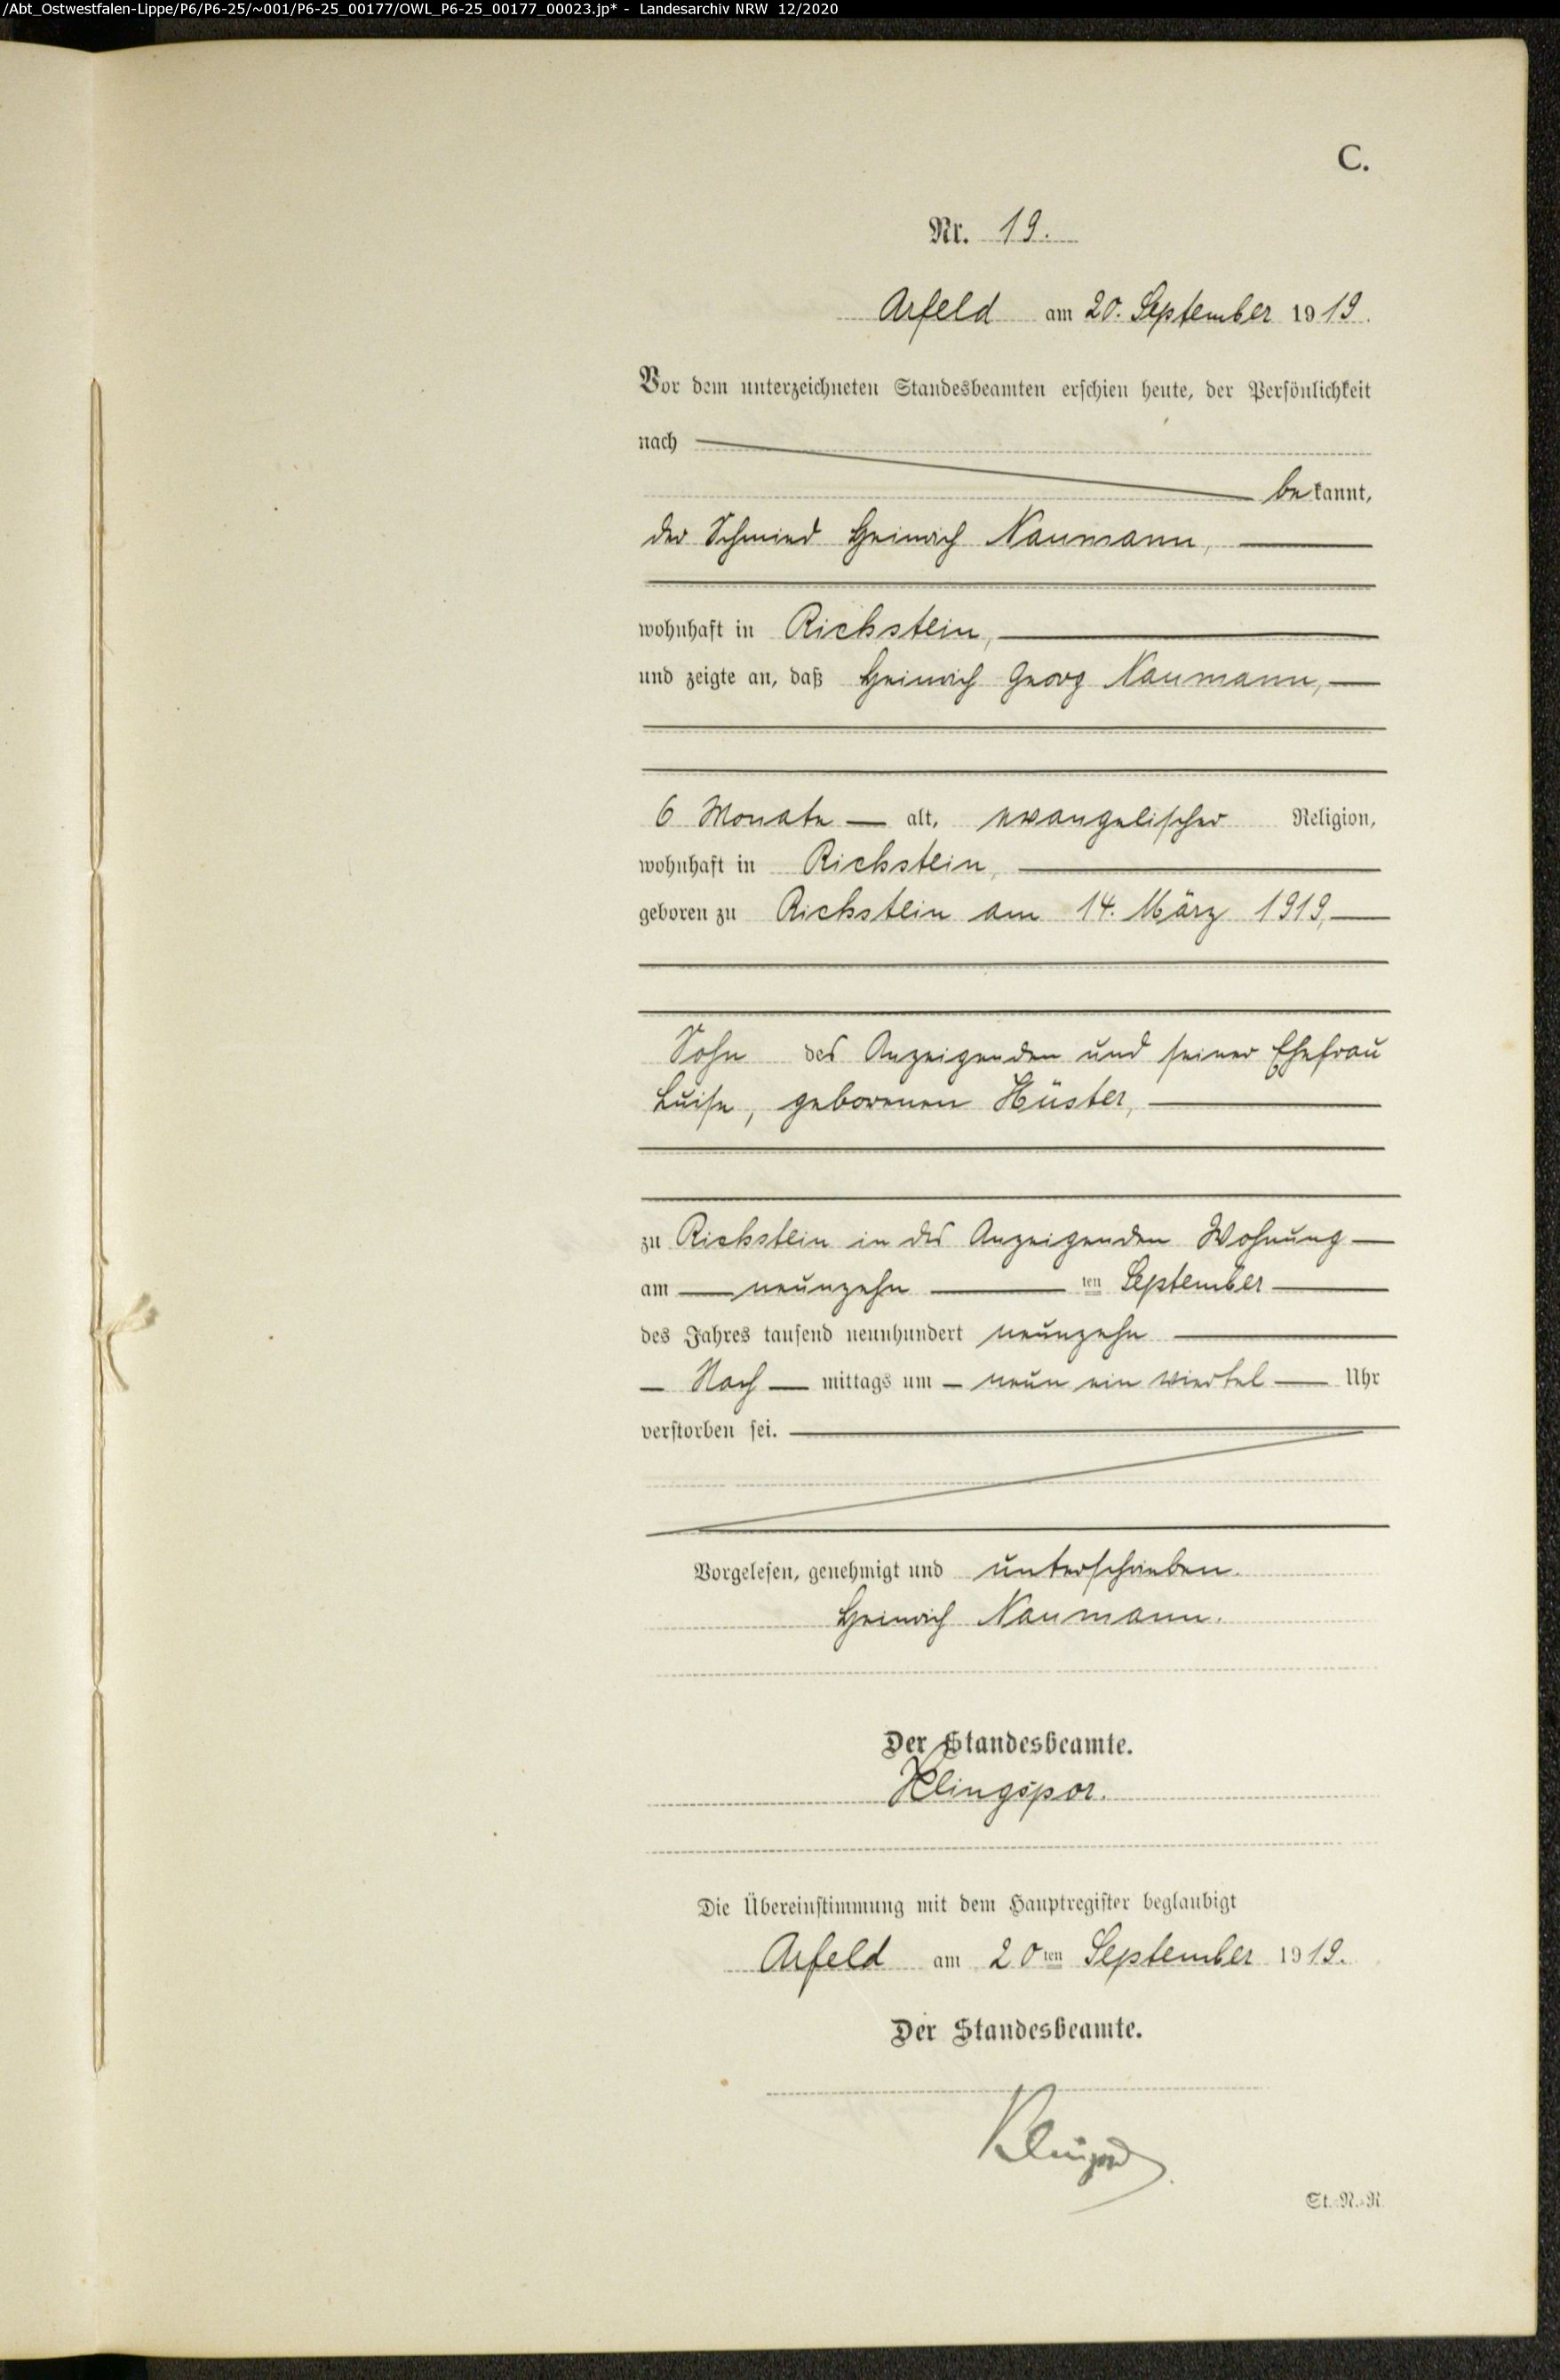 /Abt_Ostwestfalen-Lippe/P6/P6-25/~001/P6-25_00177/OWL_P6-25_00177_00023.jp* - Landesarchiv NRW 12/2020
C.
Nr. 19.
Arfeld am 20. September 1919.
Vor dem unterzeichneten Standesbeamten erschien heute, der Persönlichkeit
nach
bekannt,
der Schmied Heinrich Naumann,
wohnhaft in Richstein,
und zeigte an, daß Heinrich Georg Naumann,
6 Monate alt, evangelischer Religion,
wohnhaft in Richstein,
geboren zu Richstein am 14. März 1919,
Sohn des Anzeigenden und seiner Ehefrau
Luise, geborenen Hüster,
zu Richstein in des Anzeigenden Wohnung
am neunzehn ten September
des Jahres tausend neunhundert neunzehn
Nach mittags um neun ein viertel Uhr
verstorben sei.
Vorgelesen, genehmigt und unterschrieben.
Heinrich Naumann.
Der Standesbeamte.
Klingspor.
Die Übereinstimmung mit dem Hauptregister beglaubigt
Arfeld am 20ten September 1919.
Der Standesbeamte.
Klingspor
St.-R.-R.